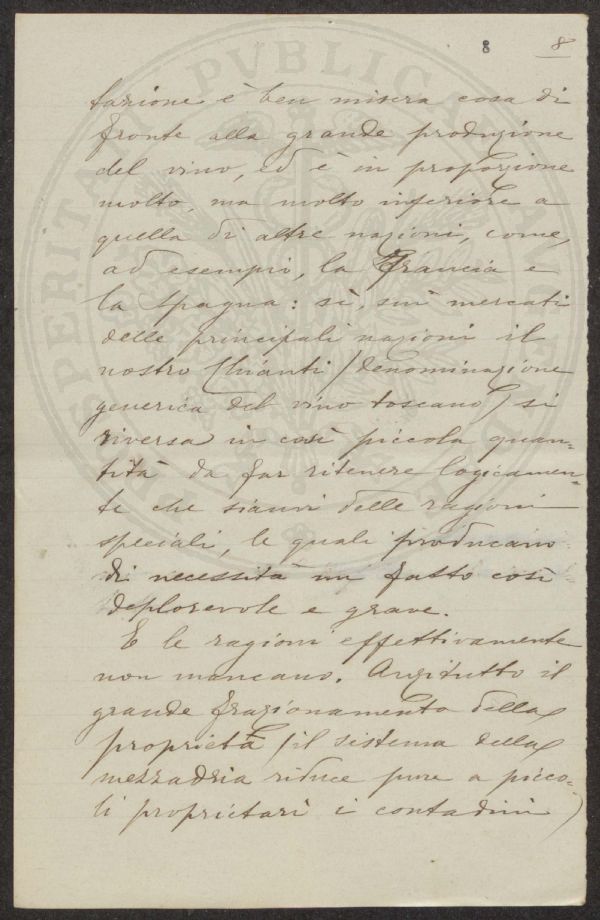 8 8
tazione è ben misera cosa di
fronte alla grande produzione
del vino, ed è in proporzione
molto, ma molto inferiore a
quella di altre nazioni, come,
ad esempio, la Francia e
la Spagna: sì, sui mercati
delle principali nazioni il
nostro Chianti (denominazione
generica del vino toscano) si
riversa in così piccola quan-
tità da far ritenere logicamen-
te che sianvi delle ragioni
speciali, le quali producano
di necessità un fatto così
deplorevole e grave.
E le ragioni effettivamente
non mancano. Anzitutto il
grande frazionamento della
proprietà (il sistema della
mezzadria riduce pure a picco-
li proprietari i contadini)
PROSPERITATI PVBLICAE AVGENDAE